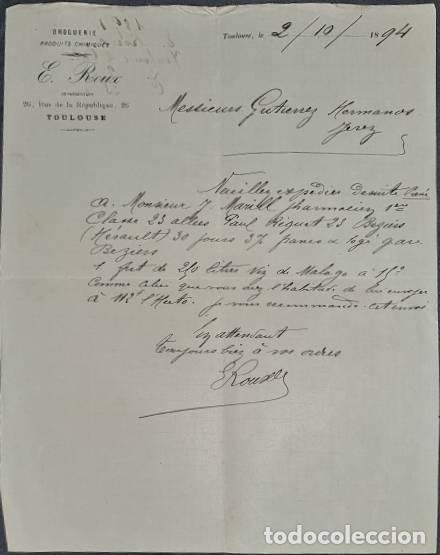 DROGUERIE
PRODUITS CHIMIQUES
E. Roux
26, Rue de la République, 26
TOULOUSE
Toulouse, le 2/10/1894
Messieurs Gutierrez Hermanos
Jerez
Veuillez expédier de suite
à Monsieur J Marill pharmacien 1ere
Classe 23 allées Paul Riquet 23 Beziers
(Hérault) 30 jours 3% franco gare
Beziers
1 fut de 210 litres Vin de Malaga à
comme celui que vous avez l'habitude de
à Mr. l'Huto. je vous recommande cet envoi
En attendant
toujours à vos ordres
E Roux
todocoleccion.net